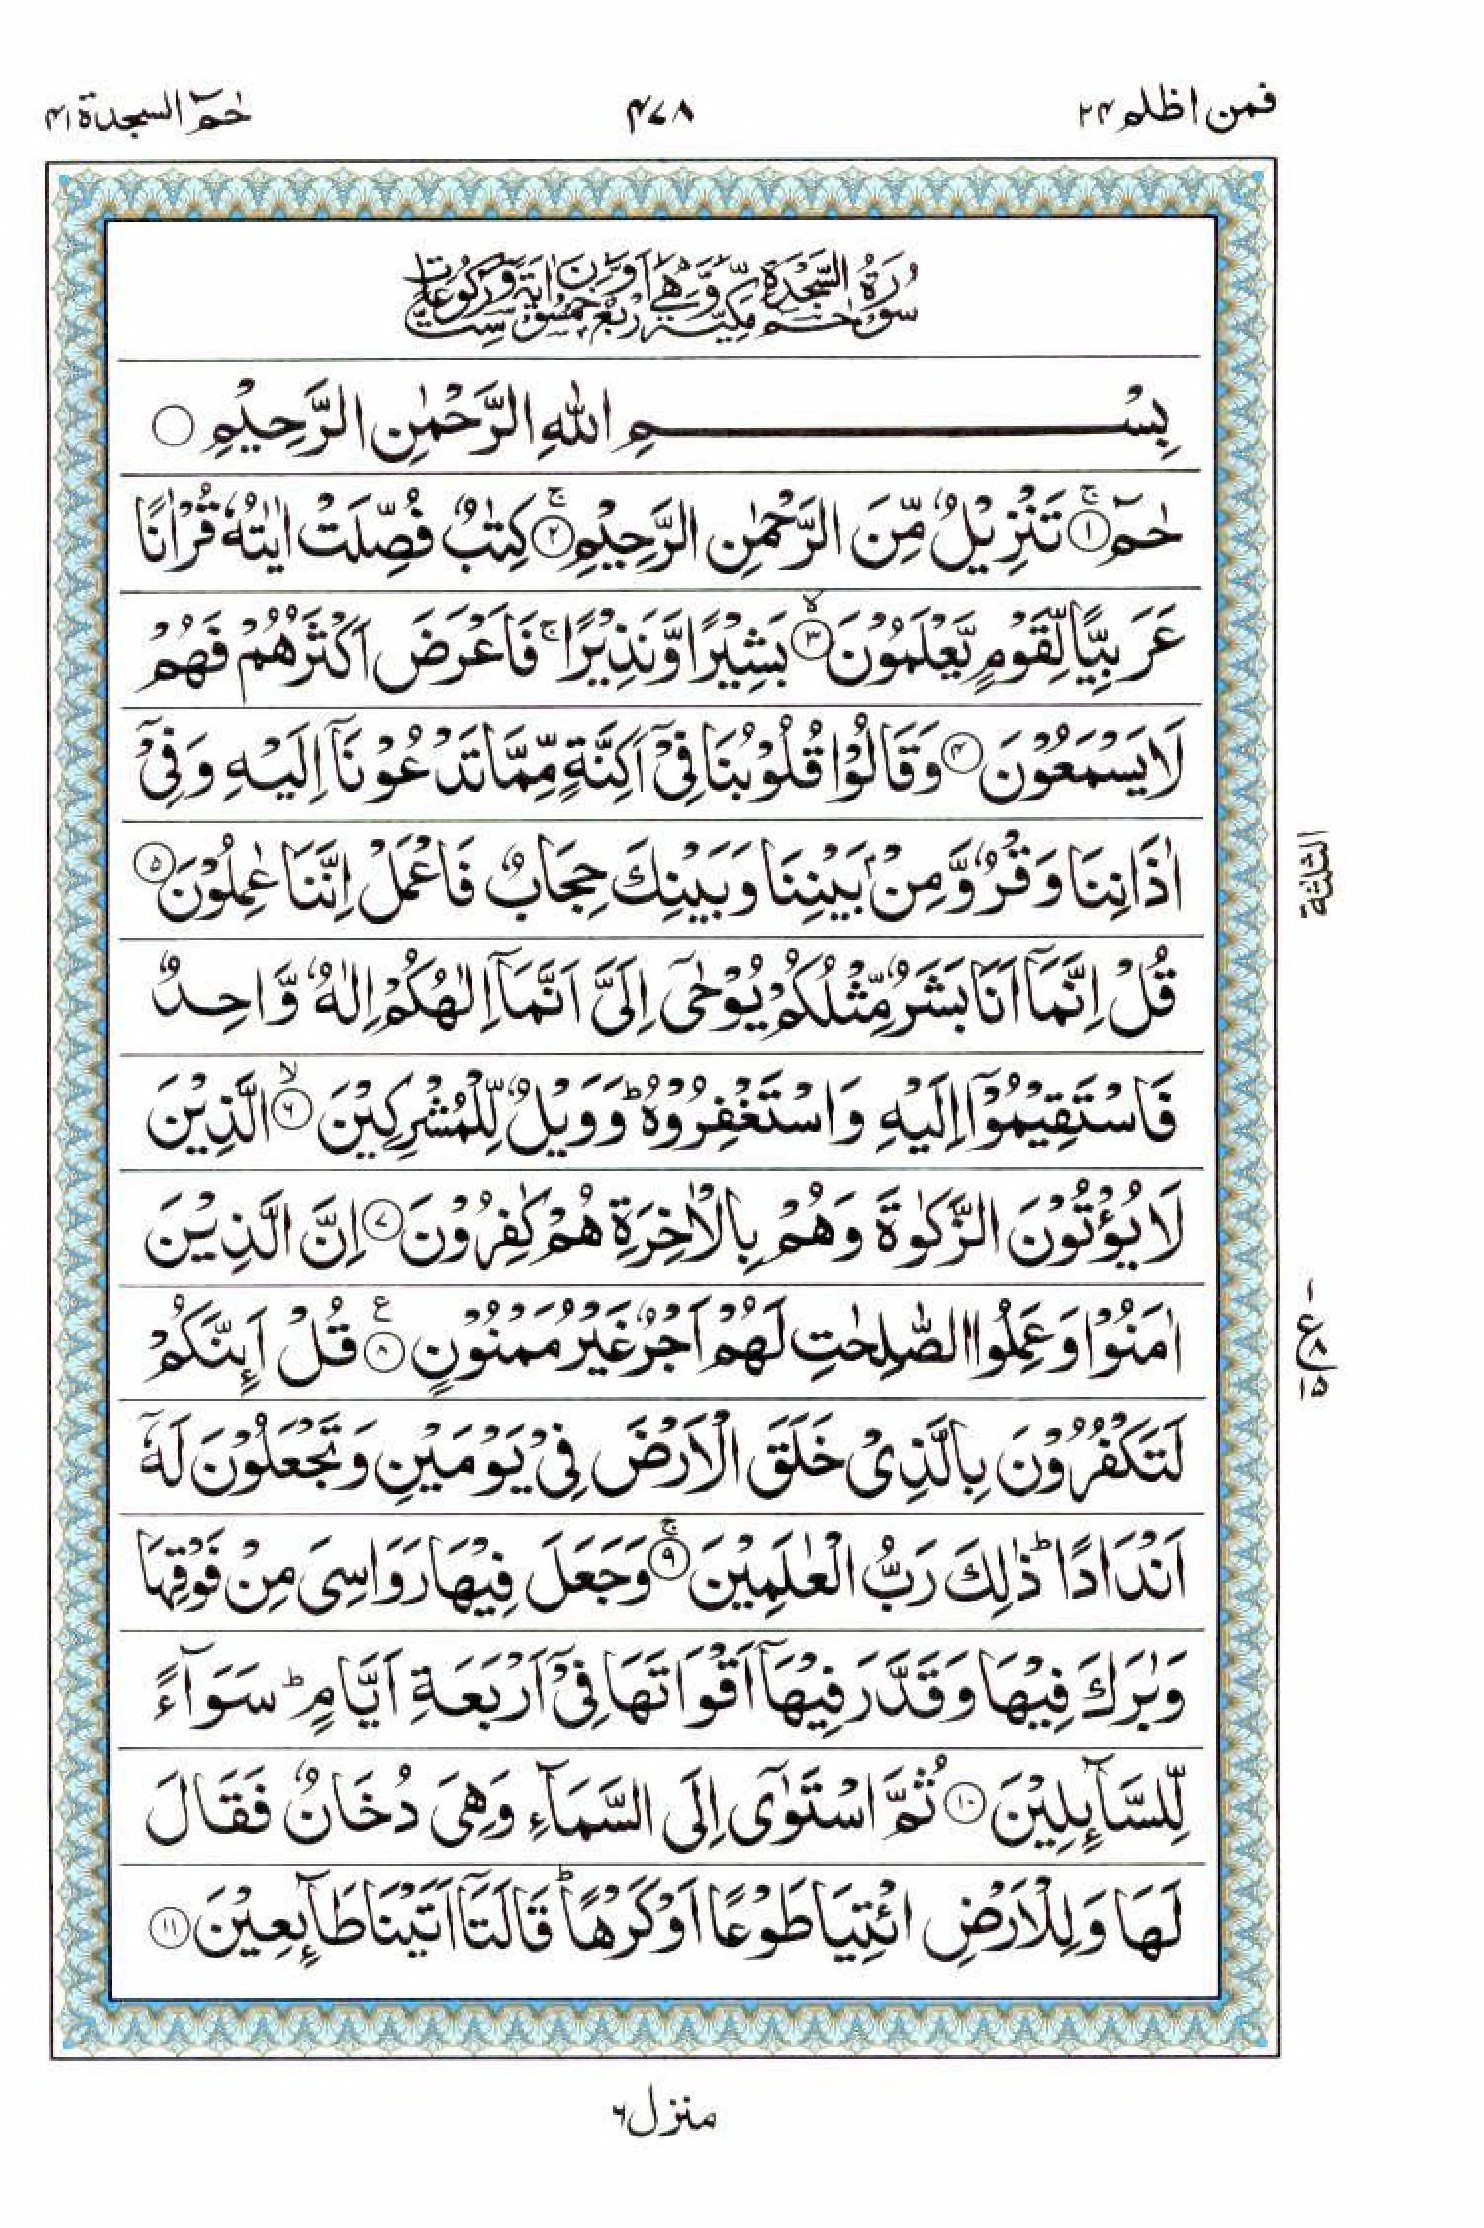 فمن اظلم ۲۴
۴۷۸
حٰمٓ السجدة ۴۱
سُوْرَةُ حٰمٓ السَّجْدَةِ مَكِّيَّةٌ وَّهِيَ اَرْبَعٌ وَّخَمْسُوْنَ اٰيَةً وَّسِتُّ رُكُوْعَاتٍ
بِسْمِ اللّٰهِ الرَّحْمٰنِ الرَّحِيْمِ ○
حٰمٓ ۚ﴿۱﴾ تَنْزِيْلٌ مِّنَ الرَّحْمٰنِ الرَّحِيْمِ ۚ﴿۲﴾ كِتٰبٌ فُصِّلَتْ اٰيٰتُهٗ قُرْاٰنًا
عَرَبِيًّا لِّقَوْمٍ يَّعْلَمُوْنَ ۙ﴿۳﴾ بَشِيْرًا وَّنَذِيْرًا ۚ فَاَعْرَضَ اَكْثَرُهُمْ فَهُمْ
لَا يَسْمَعُوْنَ ﴿۴﴾ وَقَالُوْا قُلُوْبُنَا فِيْۤ اَكِنَّةٍ مِّمَّا تَدْعُوْنَاۤ اِلَيْهِ وَفِيْۤ
اٰذَانِنَا وَقْرٌ وَّمِنْۢ بَيْنِنَا وَبَيْنِكَ حِجَابٌ فَاعْمَلْ اِنَّنَا عٰمِلُوْنَ ﴿۵﴾
قُلْ اِنَّمَاۤ اَنَا بَشَرٌ مِّثْلُكُمْ يُوْحٰۤى اِلَيَّ اَنَّمَاۤ اِلٰهُكُمْ اِلٰهٌ وَّاحِدٌ
فَاسْتَقِيْمُوْۤا اِلَيْهِ وَاسْتَغْفِرُوْهُ ؕ وَوَيْلٌ لِّلْمُشْرِكِيْنَ ۙ﴿۶﴾ الَّذِيْنَ
لَا يُؤْتُوْنَ الزَّكٰوةَ وَهُمْ بِالْاٰخِرَةِ هُمْ كٰفِرُوْنَ ﴿۷﴾ اِنَّ الَّذِيْنَ
اٰمَنُوْا وَعَمِلُوا الصّٰلِحٰتِ لَهُمْ اَجْرٌ غَيْرُ مَمْنُوْنٍ ﴿۸﴾ ع قُلْ اَئِنَّكُمْ
لَتَكْفُرُوْنَ بِالَّذِيْ خَلَقَ الْاَرْضَ فِيْ يَوْمَيْنِ وَتَجْعَلُوْنَ لَهٗۤ
اَنْدَادًا ؕ ذٰلِكَ رَبُّ الْعٰلَمِيْنَ ۚ﴿۹﴾ وَجَعَلَ فِيْهَا رَوَاسِيَ مِنْ فَوْقِهَا
وَبٰرَكَ فِيْهَا وَقَدَّرَ فِيْهَاۤ اَقْوَاتَهَا فِيْۤ اَرْبَعَةِ اَيَّامٍ ؕ سَوَآءً
لِّلسَّآئِلِيْنَ ﴿۱۰﴾ ثُمَّ اسْتَوٰۤى اِلَى السَّمَآءِ وَهِيَ دُخَانٌ فَقَالَ
لَهَا وَلِلْاَرْضِ ائْتِيَا طَوْعًا اَوْ كَرْهًا ؕ قَالَتَاۤ اَتَيْنَا طَآئِعِيْنَ ﴿۱۱﴾
الثلثة
۱
ع ۸
۱۵
منزل ۶